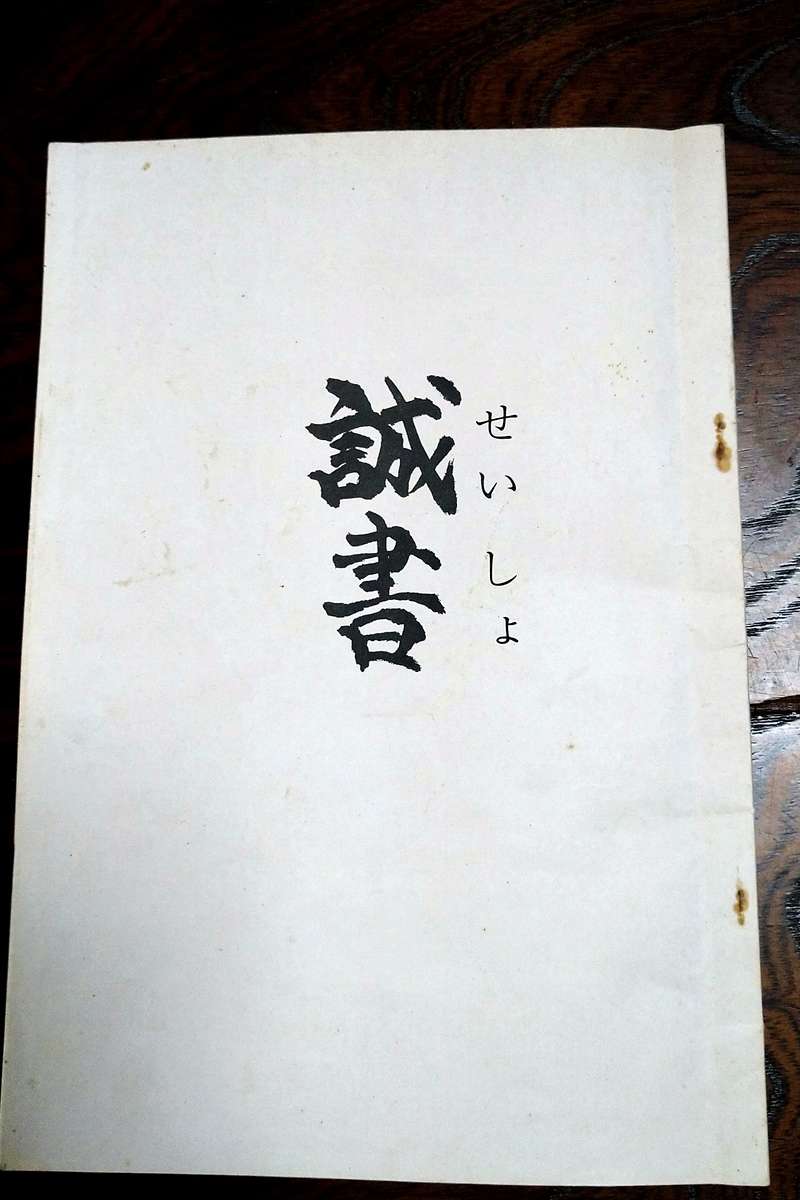 せいしょ
誠書